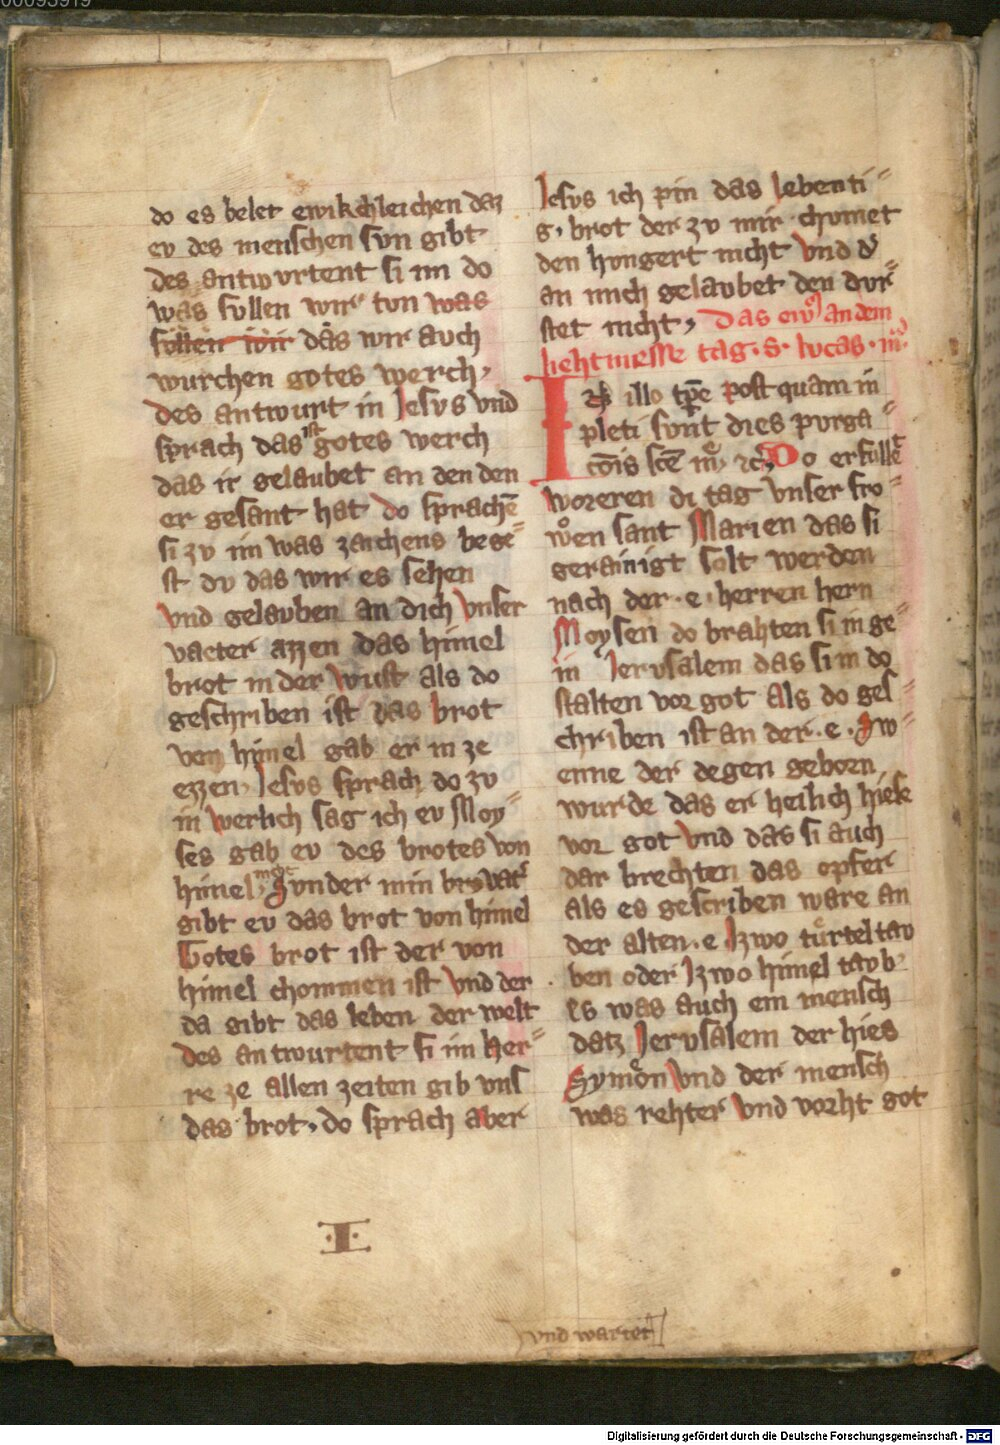 do es belet ewikchleichen daz
ev des menschen svn gibt
des antwvrtent si im do
was svllen wir tvn was
süllen wir das wir avch
wurchen gotes werch,
des antwurt in Jesvs vnd
sprach das ist gotes werch
das ir gelaubet an den den
er gesant hat do sprachē
si zv im was zaichens bege⸗
st dv das wir es sehen
vnd gelavben an dich vnser
vaeter azzen das himel
brot in der wust als do
geschriben ist das brot
von himel gab er in ze
ezzen, Jesvs sprach do zv
in werlich sag ich ev Moy⸗
ses gab ev des brotes von
himel, Svnder min vat
gibt ev das brot von himel
Gotes brot ist der von
himel chommen ist vnd der
da gibt das leben der welt
des antwurtent si im Her⸗
re ze allen zeiten gib vns
das brot, do sprach aber
Jesvs ich pin das lebenti⸗
g, brot der zv mir chvmet
den hvngert nicht vnd d
an mich gelavbet den dvr⸗
stet nicht, Das ew an dem
liehtmesse tag. S. lvcas.
In illo tpe post quam in
pleti svnt dies pvrga⸗
cōis sce m, zc, Do erfullet
woreren di tag vnser fro⸗
wen sant Marien das si
gerainigt solt werden
nach der .e. herren hern
Moysen do brahten si in ge⸗
in Jerusalem das si in do
stalten vor got als do ges⸗
chriben ist an der .e. Sw⸗
enne der degen geborn
wurde das er heilich hieße
vor got vnd das si auch
dar brechten das opfer
als es gescriben ware an
der alten .e Zwo türteltav
ben oder Zwo himel tavb
es was auch ein mensch
datz Jervsalem der hies
Symon vnd der mensch
was rehter vnd vorht got
.I.
vnd wartet
00093919
Digitalisierung gefördert durch die Deutsche Forschungsgemeinschaft - DFG